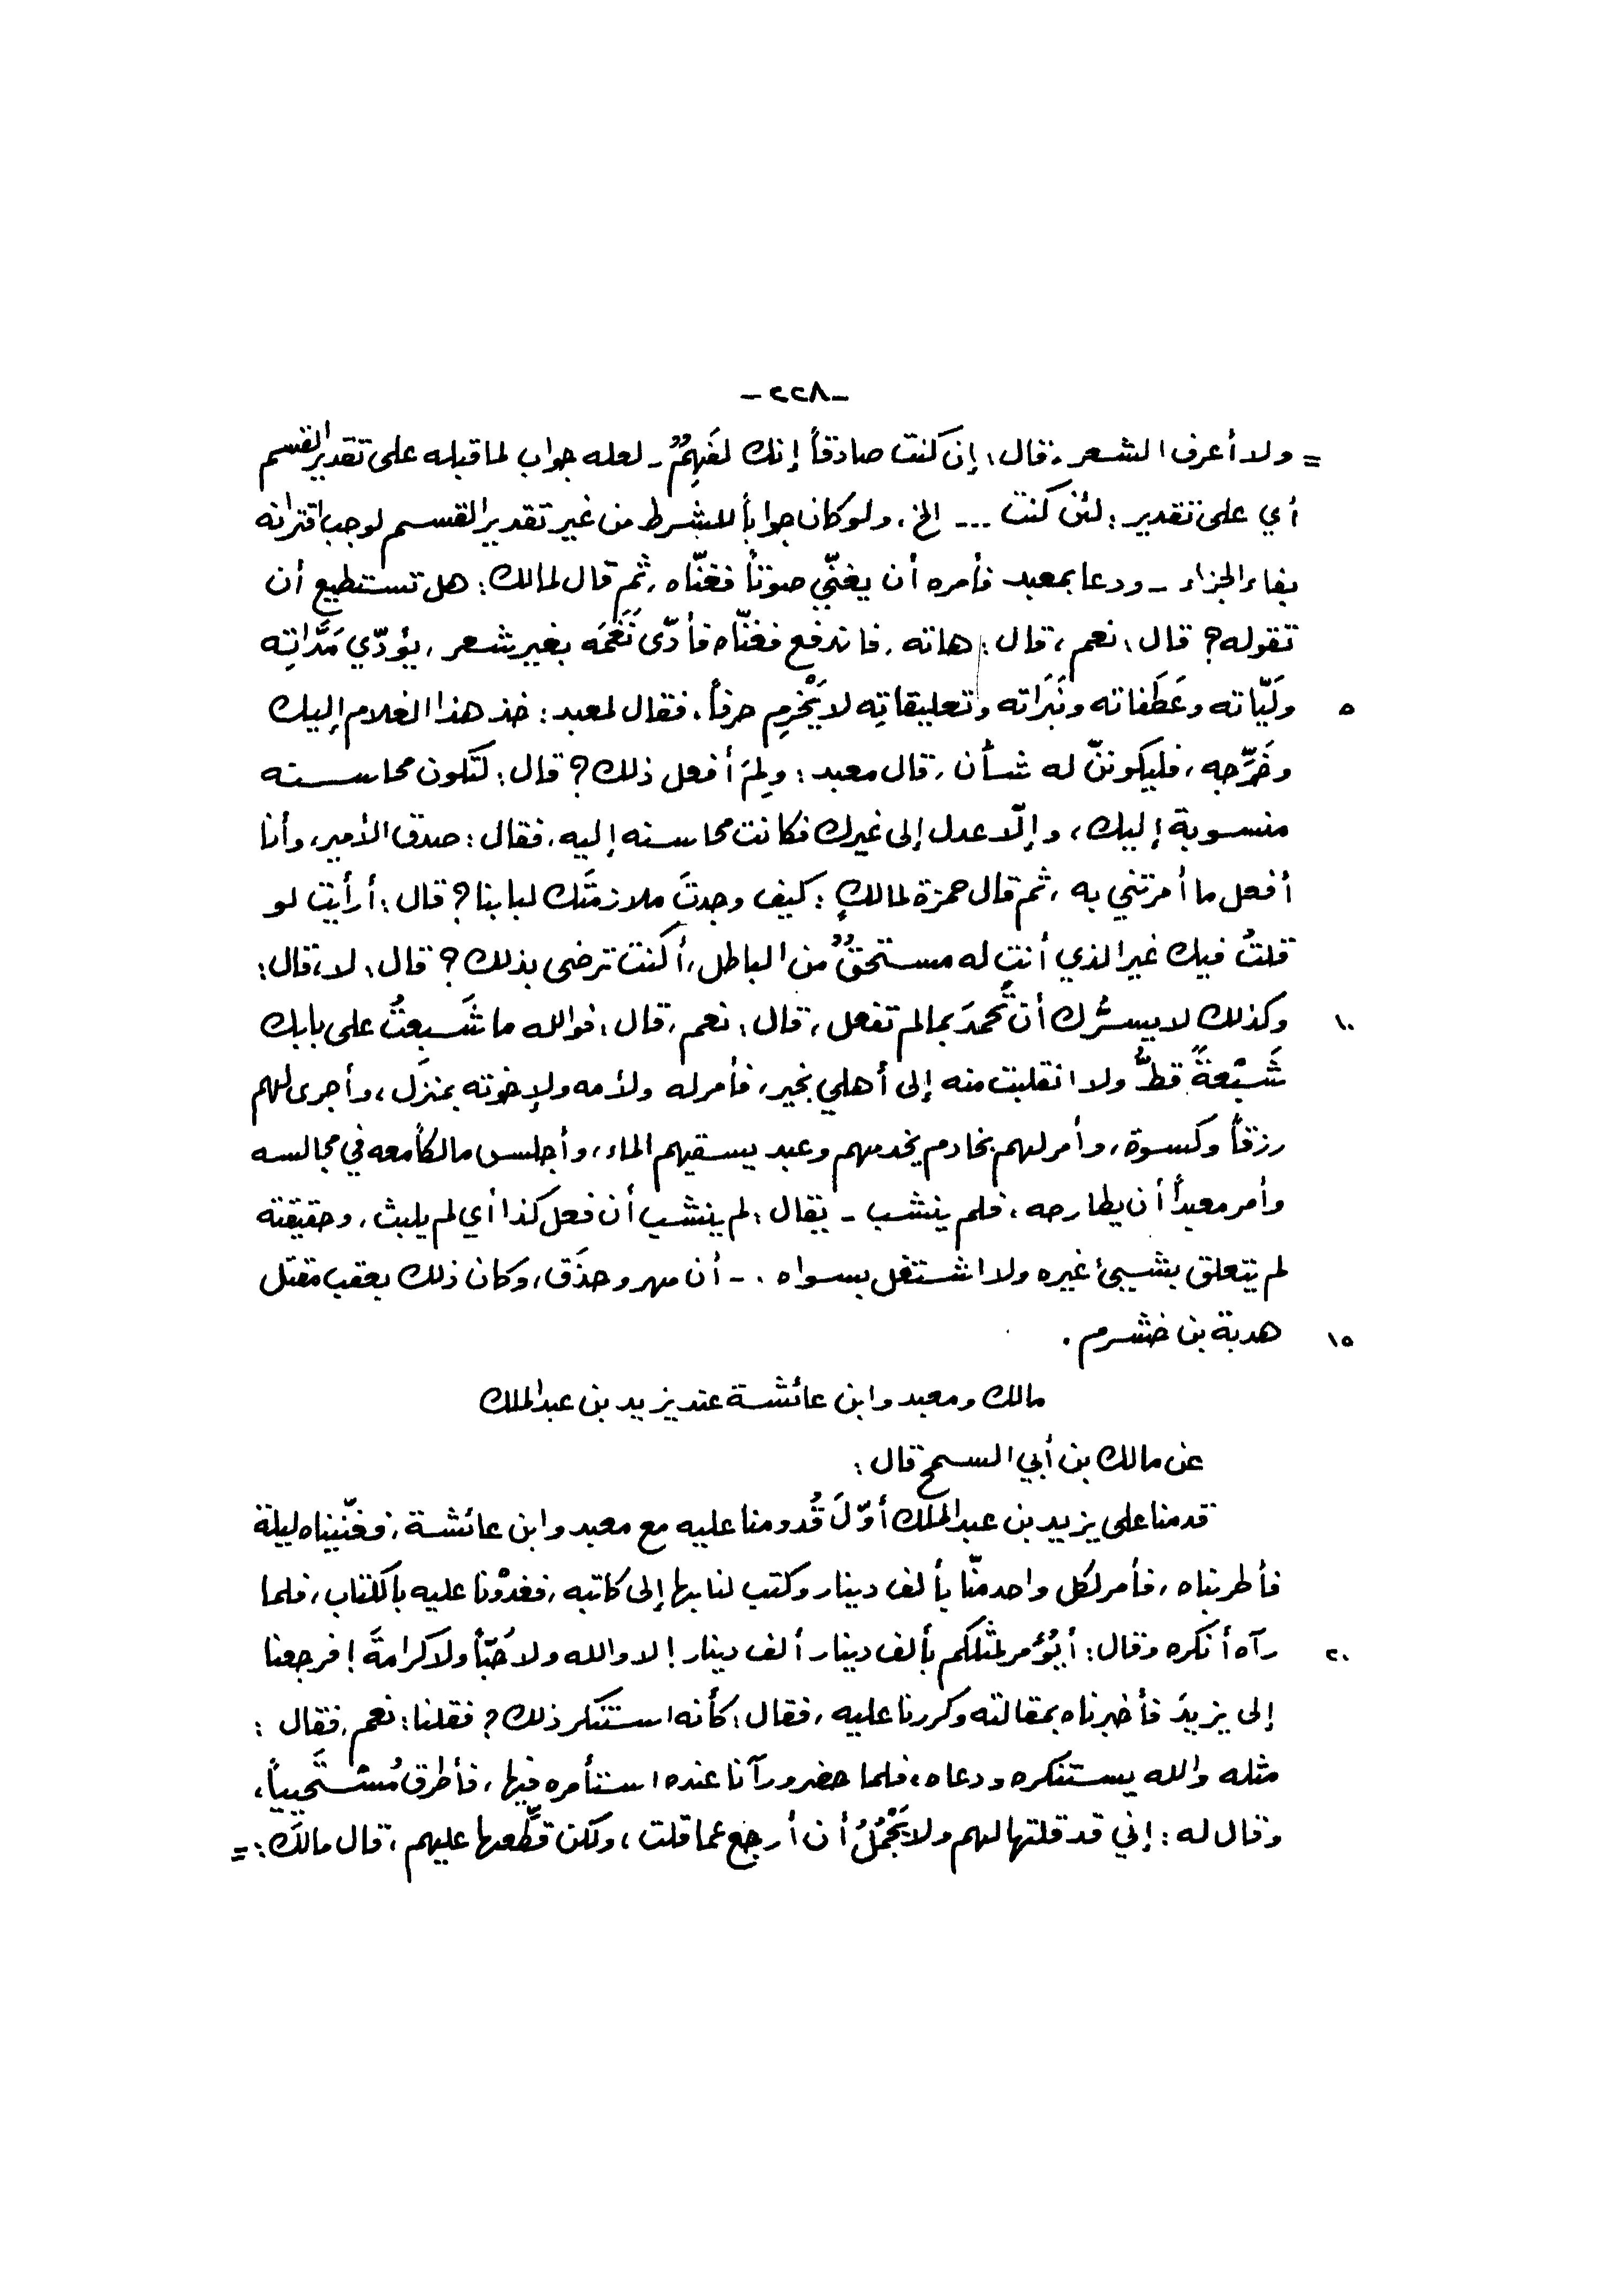 -٢٢٨-
= ولا أعرف الشعر، قال: إن كنت صادقاً إنك لفَهِمٌ - لعله جواب لما قبله على تقدير القسم
أي على تقدير: لئن كنت ... الخ، ولو كان جواباً للشرط من غير تقدير القسم لوجب اقترانه
بفاء الجزاء - ودعا بمعبد فأمره أن يغنّي صوتاً فغنّاه، ثم قال لمالك: هل تستطيع أن
تقوله؟ قال: نعم، قال: هاته، فاندفع فغنّاه فأدّى نَغَمَه بغير شعر، يؤدّي مَدَّاتِه
٥ ولَيّاته وعَطَفاته ونَبَراته وتعليقاتِه لا يَخْرِم حرفاً، فقال لمعبد: خذ هذا الغلام إليك
وخَرِّجه، فليكوننّ له شأن، قال معبد: ولِمَ أفعل ذلك؟ قال: لتكون محاسنه
منسوبة إليك، وإلّا عدل إلى غيرك فكانت محاسنه إليه، فقال: صدق الأمير، وأنا
أفعل ما أمرتني به، ثم قال حمزة لمالكٍ: كيف وجدتَ ملازمتَك لبابنا؟ قال: أرأيت لو
قلتُ فيك غير الذي أنت له مستحقٌّ من الباطل، أكنت ترضى بذلك؟ قال: لا، قال:
١٠ وكذلك لا يسرُّك أن تُحمدَ بمالم تفعل، قال: نعم، قال: فوالله ما شَبِعتُ على بابك
شَبْعةً قطُّ ولا انقلبت منه إلى أهلي بخير، فأمر له ولأمه ولإخوته بمنزل، وأجرى لهم
رزقاً وكسوة، وأمر لهم بخادم يخدمهم وعبد يسقيهم الماء، وأجلس مالكاً معه في مجالسه
وأمر معبداً أن يطارحه، فلم ينشب - يقال: لم ينشب أن فعل كذا أي لم يلبث، وحقيقته
لم يتعلق بشيئ غيره ولا اشتغل بسواه . - أن مهر وحذَق، وكان ذلك بعقب مقتل
١٥ هدبة بن خشرم .
مالك ومعبد وابن عائشة عند يزيد بن عبد الملك
عن مالك بن أبي السمح قال:
قدمنا على يزيد بن عبد الملك أوّلَ قُدومنا عليه مع معبد وابن عائشة، فغنّيناه ليلة
فأطربناه، فأمر لكل واحد منّا بألف دينار وكتب لنا بها إلى كاتبه، فغدوْنا عليه بالكتاب، فلما
٢٠ رآه أنكره وقال: أيُؤمر لمثلكم بألف دينار ألف دينار! لا والله ولا حُبّاً ولا كرامةَ! فرجعنا
إلى يزيدَ فأخبرناه بمقالته وكررنا عليه، فقال: كأنه استنكر ذلك؟ فقلنا: نعم، فقال:
مثله والله يستنكره ودعاه، فلما حضر ورآنا عنده استأمره فيها، فأطرق مُسْتَحيياً،
وقال له: إني قد قلتها لهم ولا يَجْمُلُ أن أرجع عما قلت، ولكن قطِّعها عليهم، قال مالك: =